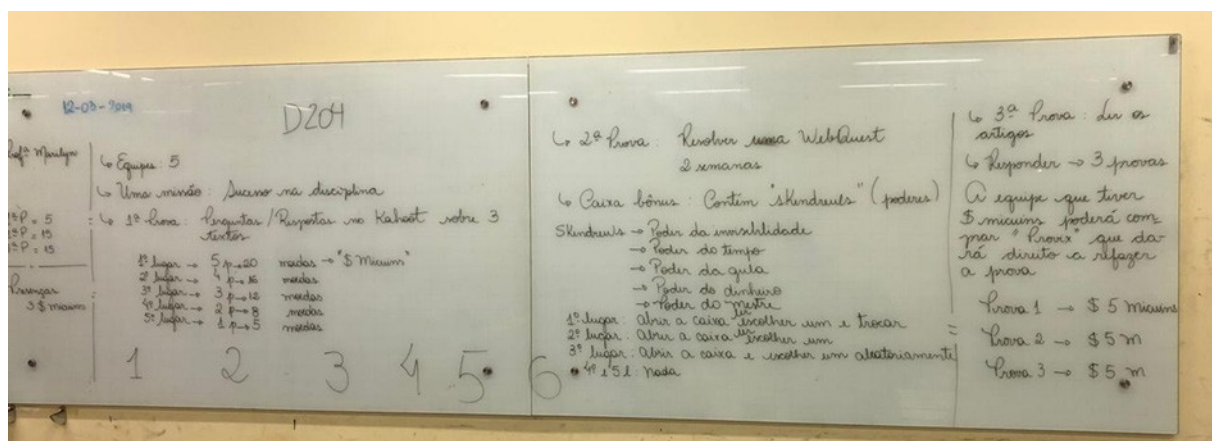 12-03-2019
D204
Profª Marilyn
1ªP = 5
2ªP = 15
3ªP = 15
Presenças
3 $ micuins
↳ Equipes: 5
↳ Uma missão: Sucesso na disciplina
↳ 1ª Prova: Perguntas/Respostas no Kahoot sobre 3
textos
1º lugar → 5 p → 20 moedas → "$ Micuins"
2º lugar → 4 p → 16 moedas
3º lugar → 3 p → 12 moedas
4º lugar → 2 p → 8 moedas
5º lugar → 1 p → 5 moedas
1 2 3 4 5 6
↳ 2ª Prova: Resolver uma WebQuest
2 semanas
↳ Caixa bônus: Contém "skendreuls" (poderes)
Skendreuls → Poder da invisibilidade
→ Poder do tempo
→ Poder da gula
→ Poder do dinheiro
→ Poder do mestre
1º lugar: Abrir a caixa, ler escolher um e trocar
2º lugar: Abrir a caixa ler escolher um
3º lugar: Abrir a caixa e escolher um aleatoriamente
4º e 5 l: nada
↳ 3ª Prova: Ler os
artigos
↳ Responder → 3 provas
A equipe que tiver
$ micuins poderá com-
prar "Provix" que da-
rá direito a refazer
a prova
Prova 1 → $ 5 micuins
Prova 2 → $ 5 m
Prova 3 → $ 5 m